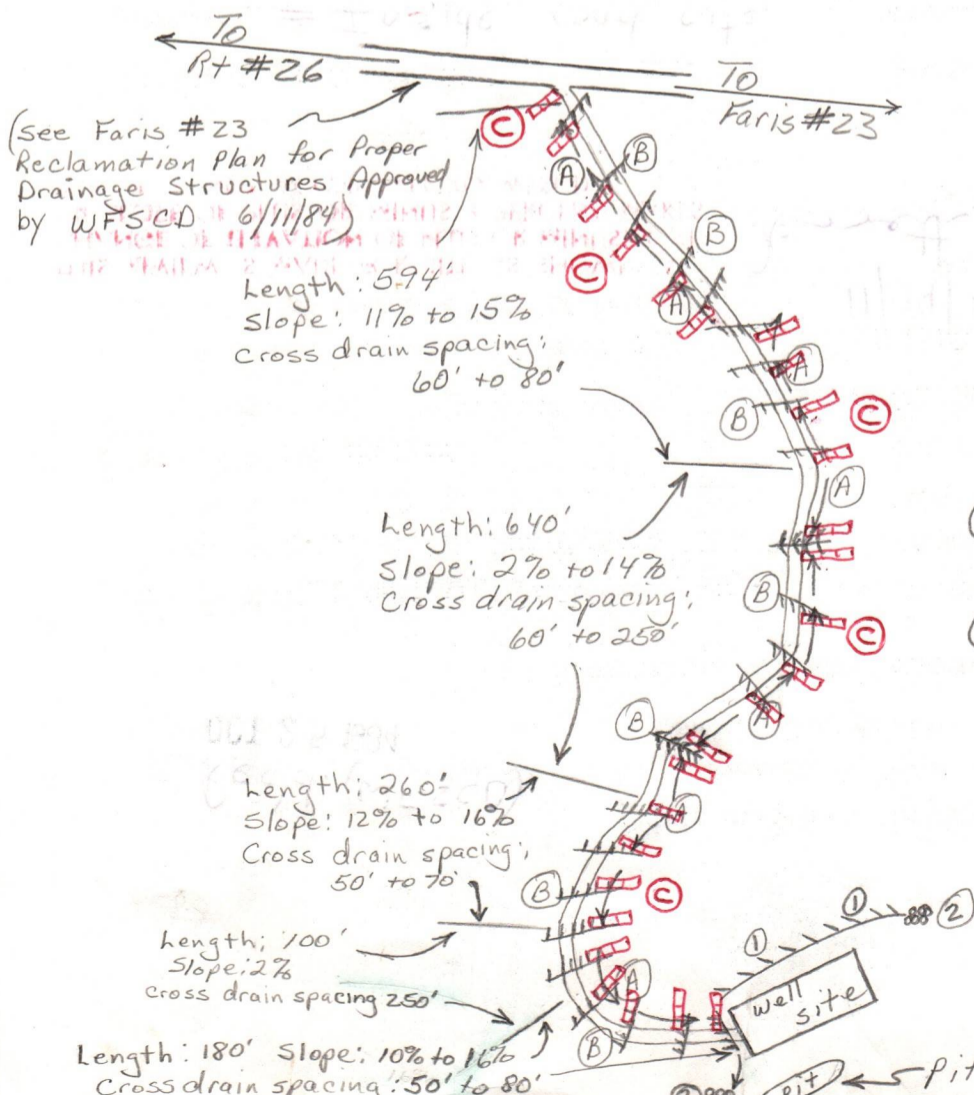 To
Rt #26
To
Faris #23
(see Faris #23
Reclamation Plan for Proper
Drainage Structures Approved
by WFSCD 6/1/84)
C
A
B
C
B
A
Length: 594'
Slope: 11% to 15%
Cross drain spacing:
60' to 80'
A
B
C
A
Length: 640'
Slope: 2% to 14%
Cross drain spacing:
60' to 250'
B
C
A
B
Length: 260'
Slope: 12% to 16%
Cross drain spacing:
50' to 70'
A
B
C
Length: 100'
Slope: 2%
cross drain spacing 250'
A
B
1
1
2
well
site
Length: 180' Slope: 10% to 16%
Cross drain spacing: 50' to 80'
Pit
Pit